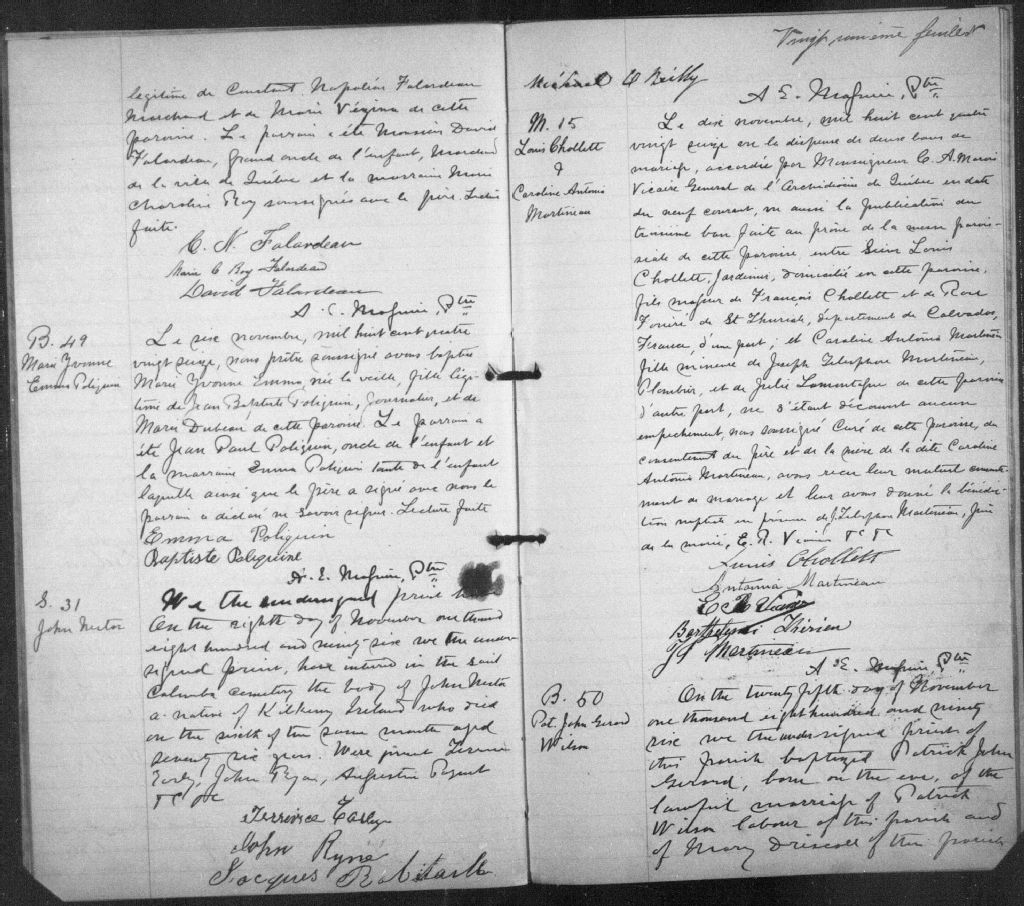 legitime de Constant Napoléon Falardeau
Marchand et de Marie Vézina de cette
paroisse. Le parrain a été Monsieur David
Falardeau, grand oncle de l'enfant, Marchand
de la ville de Québec et la marraine Marie
Charoline Roy soussignés avec le père. Lecture
faite.
C. N. Falardeau
Marie C Roy Falardeau
David Falardeau
A. E. Maguire, Ptre
B. 49
Marie Yvonne
Emma Poliquin
Le six novembre, mil huit cent quatre
vingt seize, nous prêtre soussigné avons baptisé
Marie Yvonne Emma, née la veille, fille légi-
time de Jean Baptiste Poliquin, journalier, et de
Marie Dubeau de cette paroisse. Le parrain a
été Jean Paul Poliquin, oncle de l'enfant et
la marraine Emma Poliquin tante de l'enfant
laquelle ainsi que le père a signé avec nous le
parrain a déclaré ne savoir signer. Lecture faite
Emma Poliquin
Baptiste Poliquine
A. E. Maguire, Ptre
S. 31
John Nestor
We the undersigned priest
On the eighth day of November one thousand
eight hundred and ninety six we the under
signed priest, have interred in the said
Columba cemetery the body of John Nestor
a native of Kilkenny Ireland who died
on the sixth of the same month aged
seventy six years. Were present Terrence
Earley, John Ryan, Augustin
Terrence Earley
John Ryne
Jacques Robitaille
Vingt unième feuillet
Michael O Reilly
A E. Maguire, Ptre
M. 15
Louis Chollett
&
Caroline Antonia
Martineau
Le dix novembre, mil huit cent quatre
vingt seize vu la dispense de deux bans de
mariage, accordée par Monseigneur C. A. Marois
Vicaire General de l'Archidiocèse de Québec en date
du neuf courant, vu aussi la publication du
troisième ban faite au prône de la messe parois-
siale de cette paroisse, entre Sieur Louis
Chollett, Jardinier, domicilié en cette paroisse,
fils majeur de François Chollett et de Rose
de St département de Calvados,
France, d'une part; et Caroline Antonia Martineau
fille mineure de Joseph Telesphore Martineau,
Plombier, et de Julie Lamontagne de cette paroisse
d'autre part, ne s'étant découvert aucun
empêchement, nous soussigné Curé de cette paroisse, du
consentement du père et de la mère de la dite Caroline
Antonia Martineau, avons reçu leur mutuel consente-
ment de mariage et leur avons donné la bénédic-
tion nuptiale en présence de J. Telesphore Martineau, père
de la mariée, E. R.
Louis Chollett
Antonia Martineau
E R
Barthelemi Thérien
J T Martineau
A E. Maguire, Ptre
B. 50
Pat. John Gerard
Wilson
On the twenty fifth day of November
one thousand eight hundred and ninety
six we the undersigned priest of
this parish baptized Patrick John
Gerard, born on the eve, of the
lawful marriage of Patrick
Wilson labour of this parish and
of Mary Driscoll of this parish